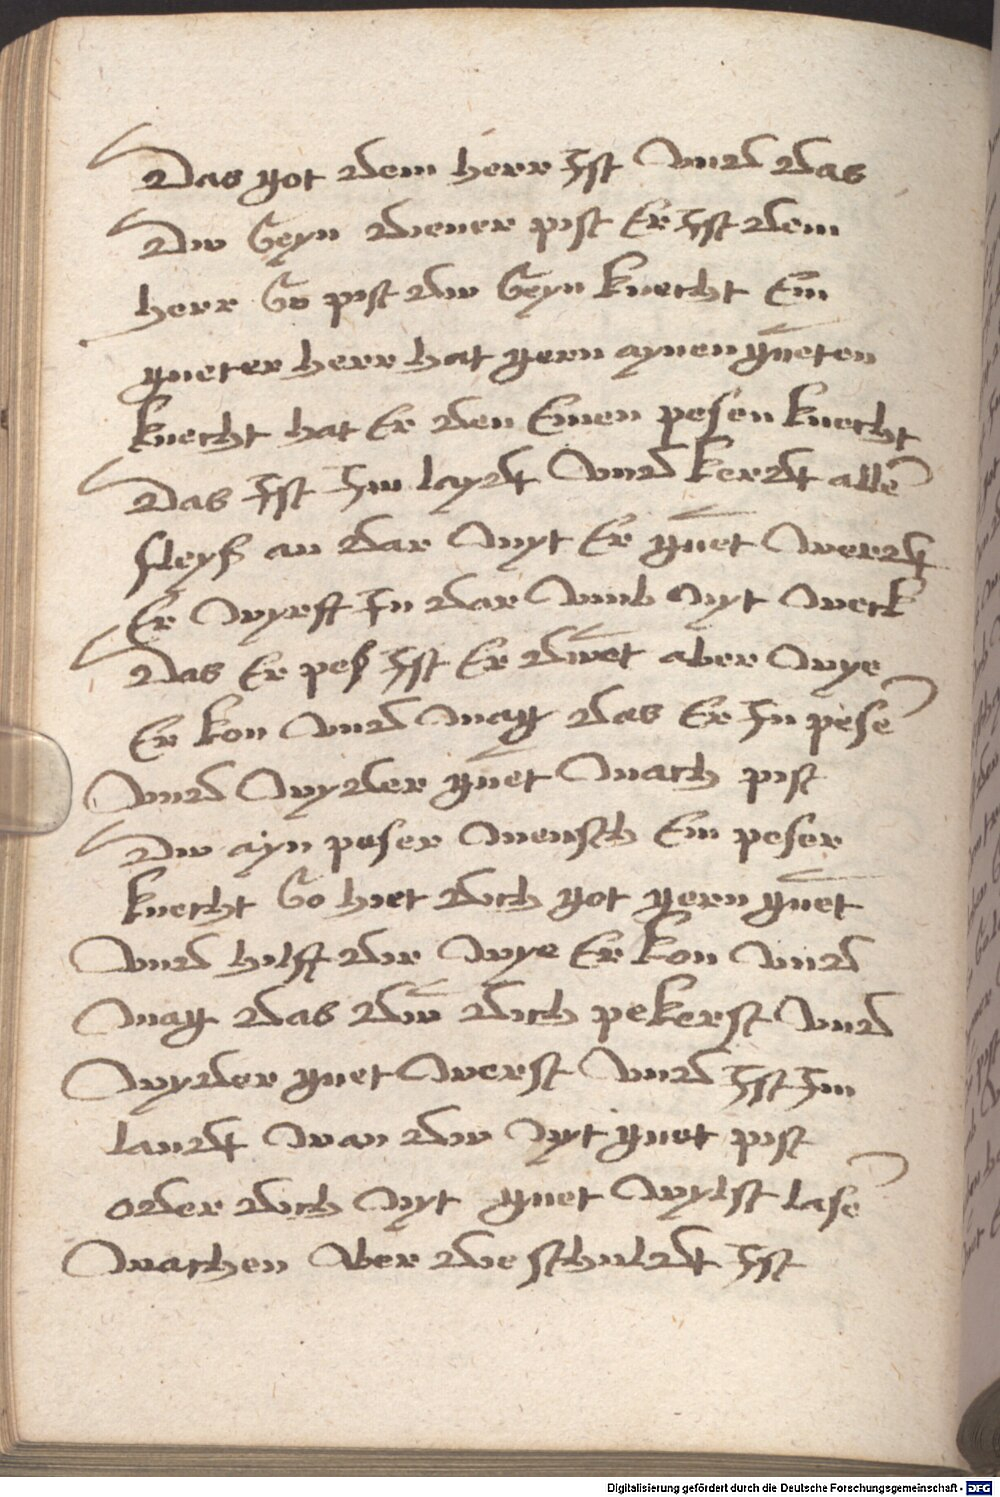 Das got dein herr Ist Vnnd das
Du seyn diener pist Er Ist dein
herr So pist du seyn knecht Ein
gueter herr hat gern aynen gueten
knecht hat Er den Einen pesen knecht
Das Ist Im laydt Vnnd kerdt allē
fleyß an dar Myt Er guet Werdt
Er Wyrfft In dar Vmb Nyt Weck
Das Er peß Ist Er duet aber Wye
Er kon Vnnd Mag das Er In pesē
Vnnd Wyder guet Mach pist
Du ayn peser Mensch Ein peser
knecht So hiet dich got gern guet
Vnnd hilfft dir Wye Er kon Vnnd
Mag das du dich pekerst Vnnd
Wyder guet Werst Vnnd Ist Im
laydt Wan du Nyt guet pist
oder dich Nyt guet Wylst lasē
Machen Aber die schuldt Ist
Digitalisierung gefördert durch die Deutsche Forschungsgemeinschaft - DFG